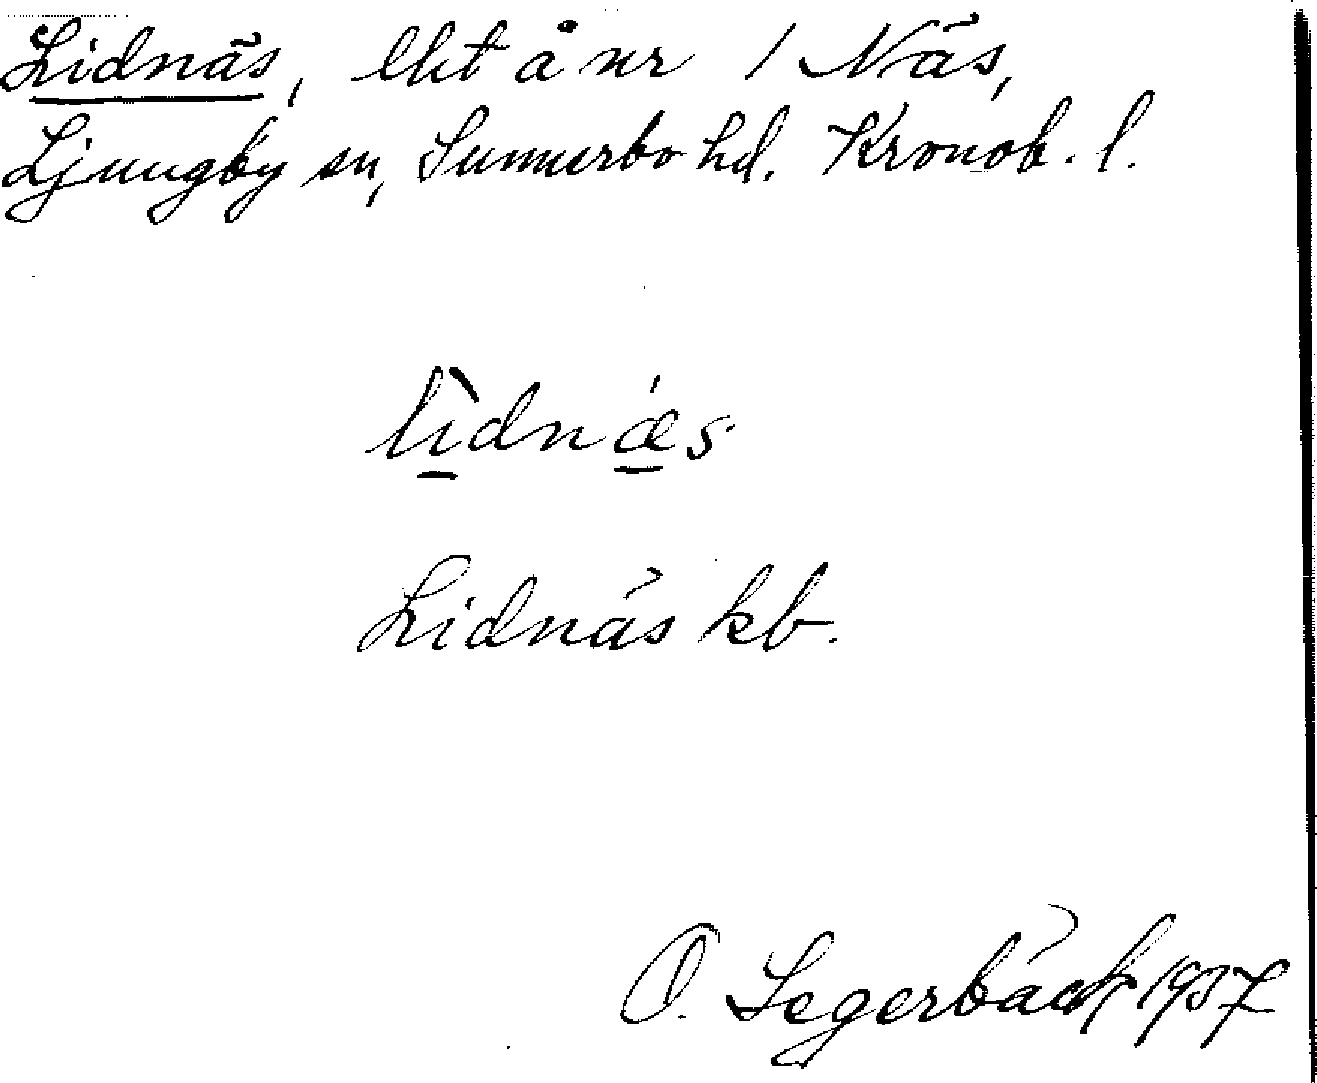 Lidnäs, lht å nr 1 Näs,
Ljungby sn, Sunnerbo hd. Kronob. l.
lìdnǽs
Lidnäs kb.
O. Segerbäck 1937